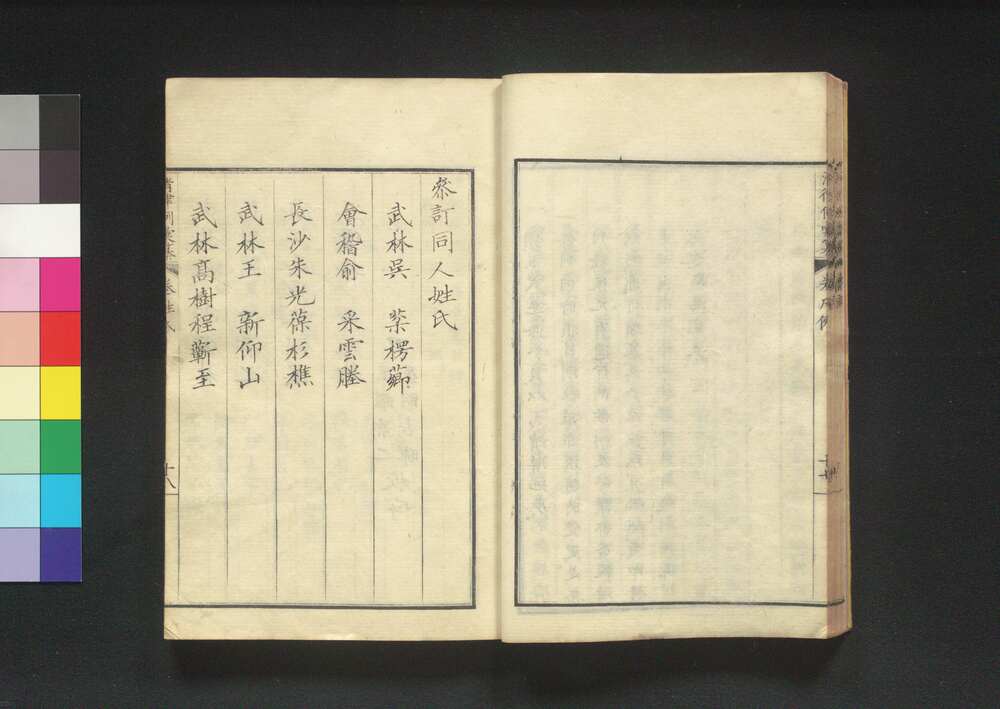 參訂同人姓氏
武林吳 棻楞薌
會稽俞 采雲塍
長沙朱光葆杉樵
武林王 新仰山
武林高樹程蘄至
十八